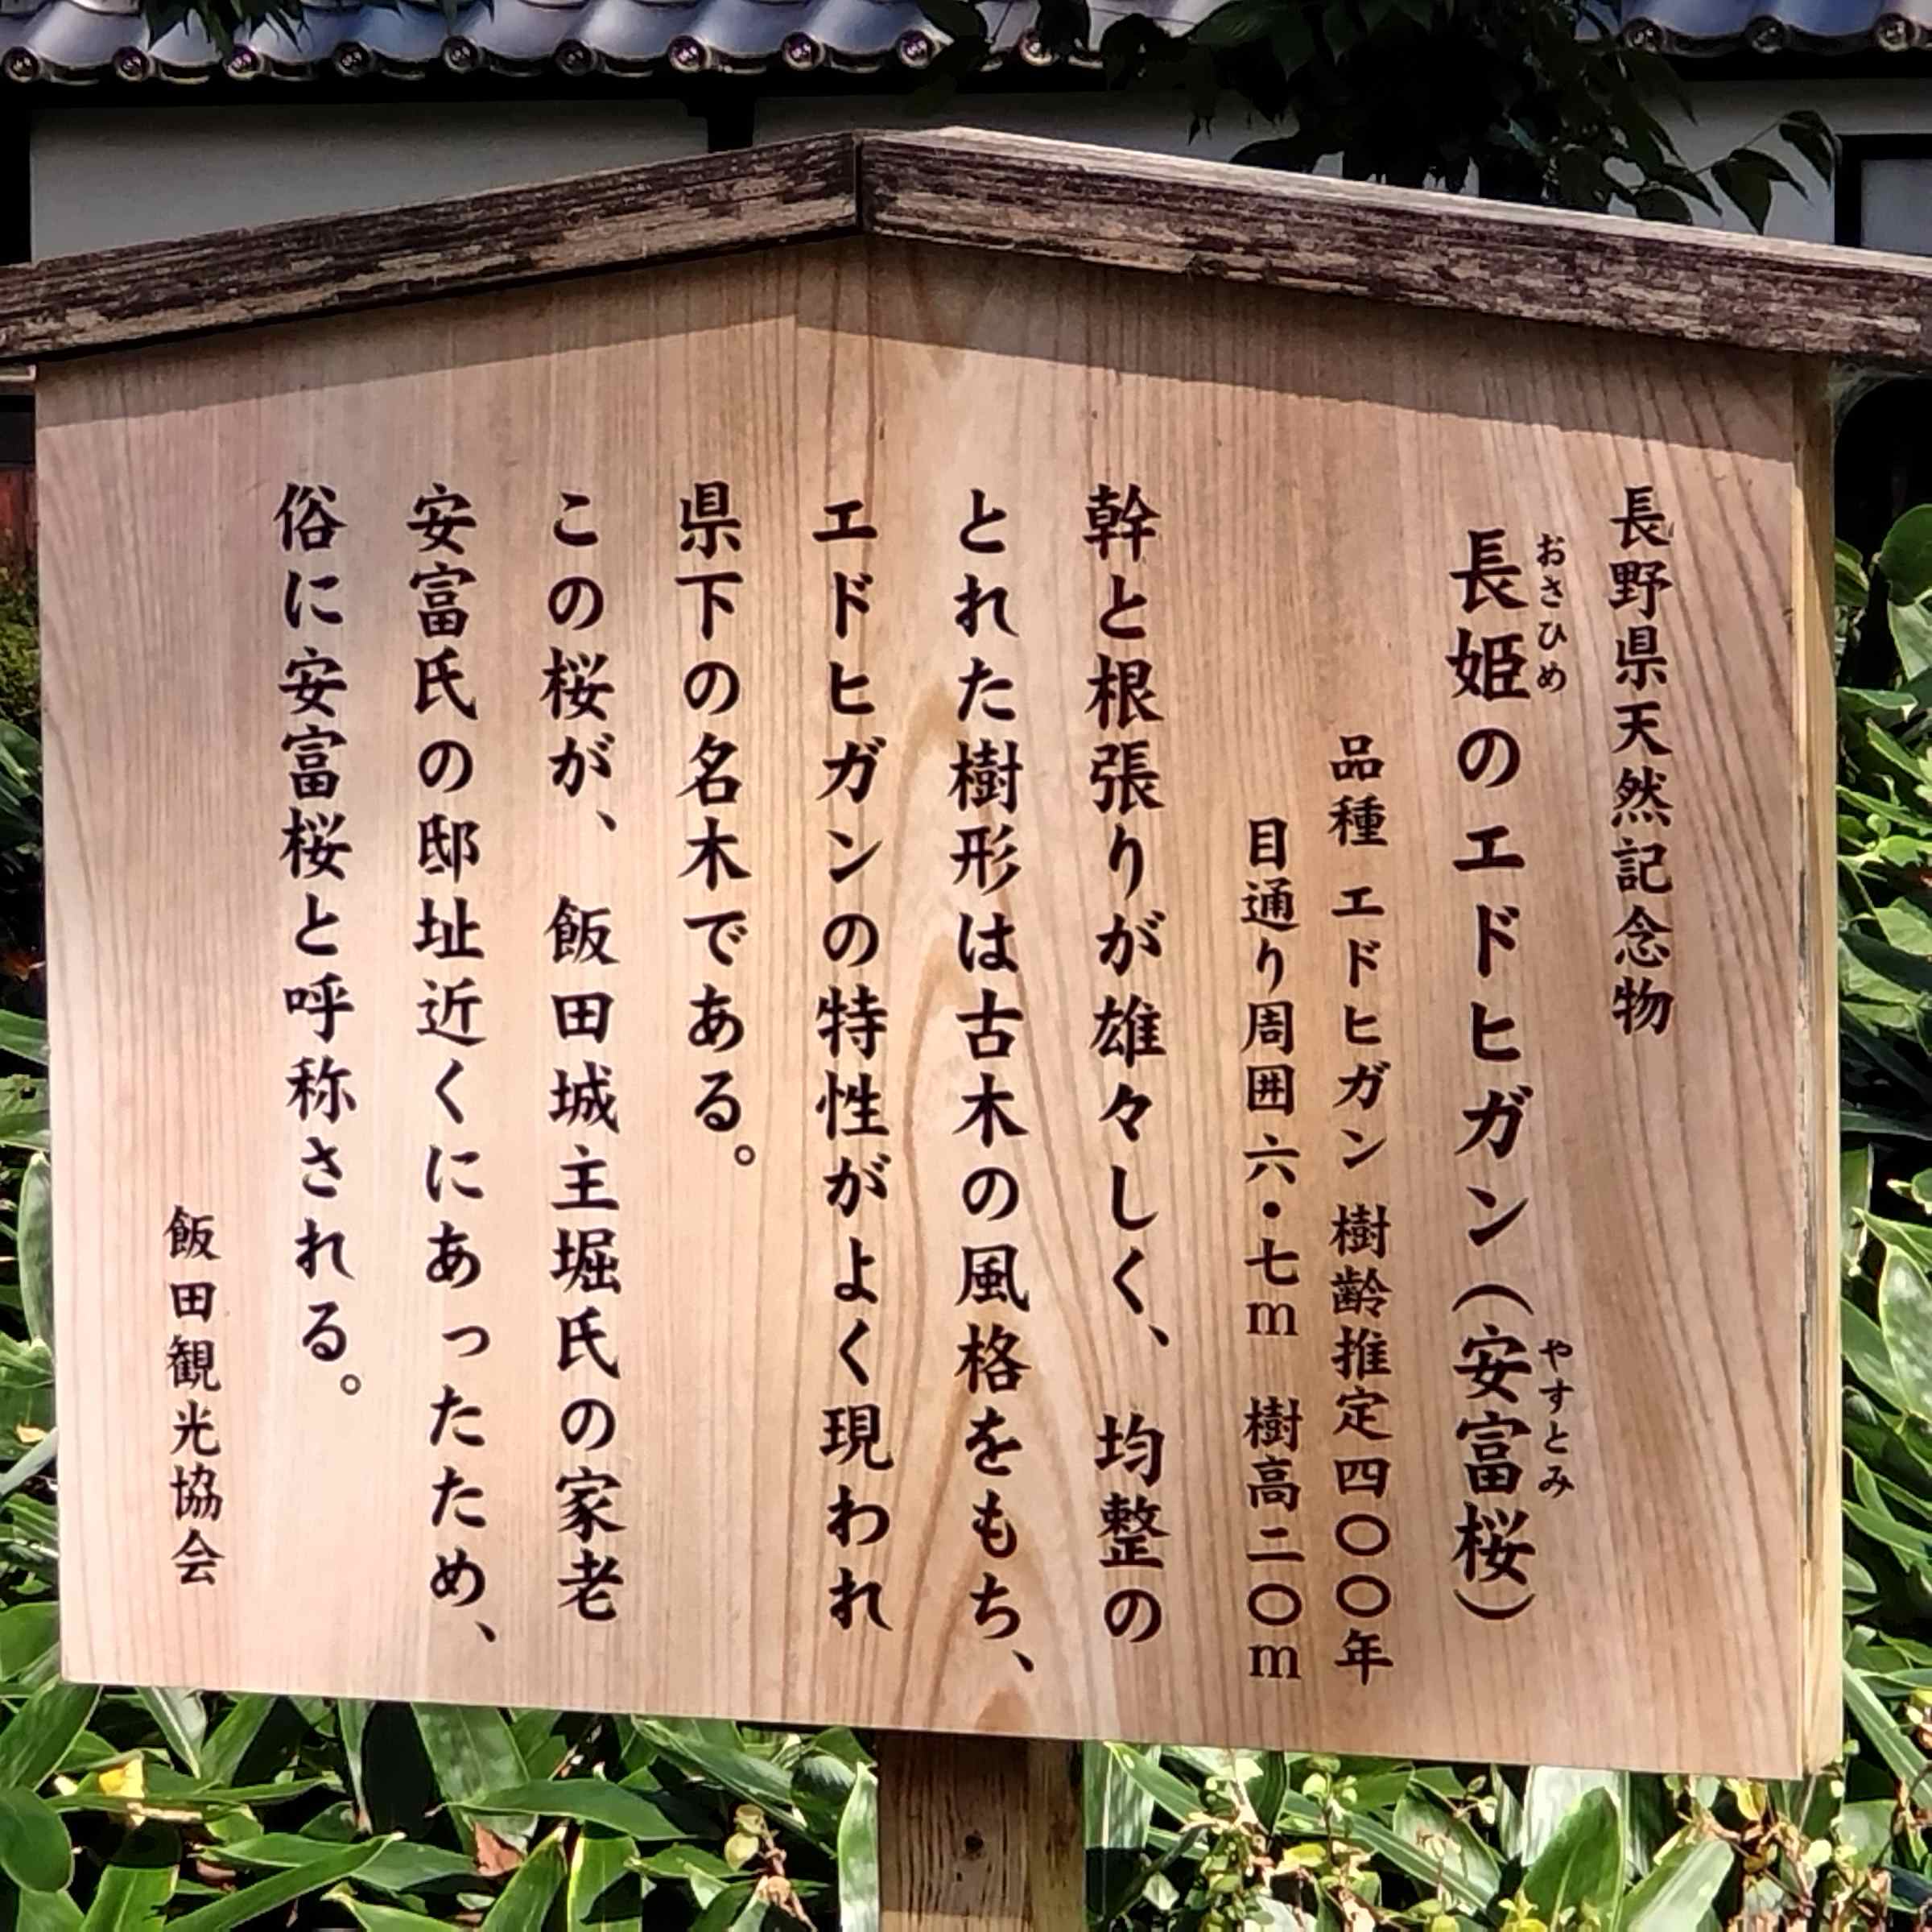 長野県天然記念物
長姫のエドヒガン(安富桜)
おさひめ
やすとみ
品種 エドヒガン 樹齢推定四〇〇年
目通り周囲六・七m 樹高二〇m
幹と根張りが雄々しく、均整の
とれた樹形は古木の風格をもち、
エドヒガンの特性がよく現われ
県下の名木である。
この桜が、飯田城主堀氏の家老
安富氏の邸址近くにあったため、
俗に安富桜と呼称される。
飯田観光協会